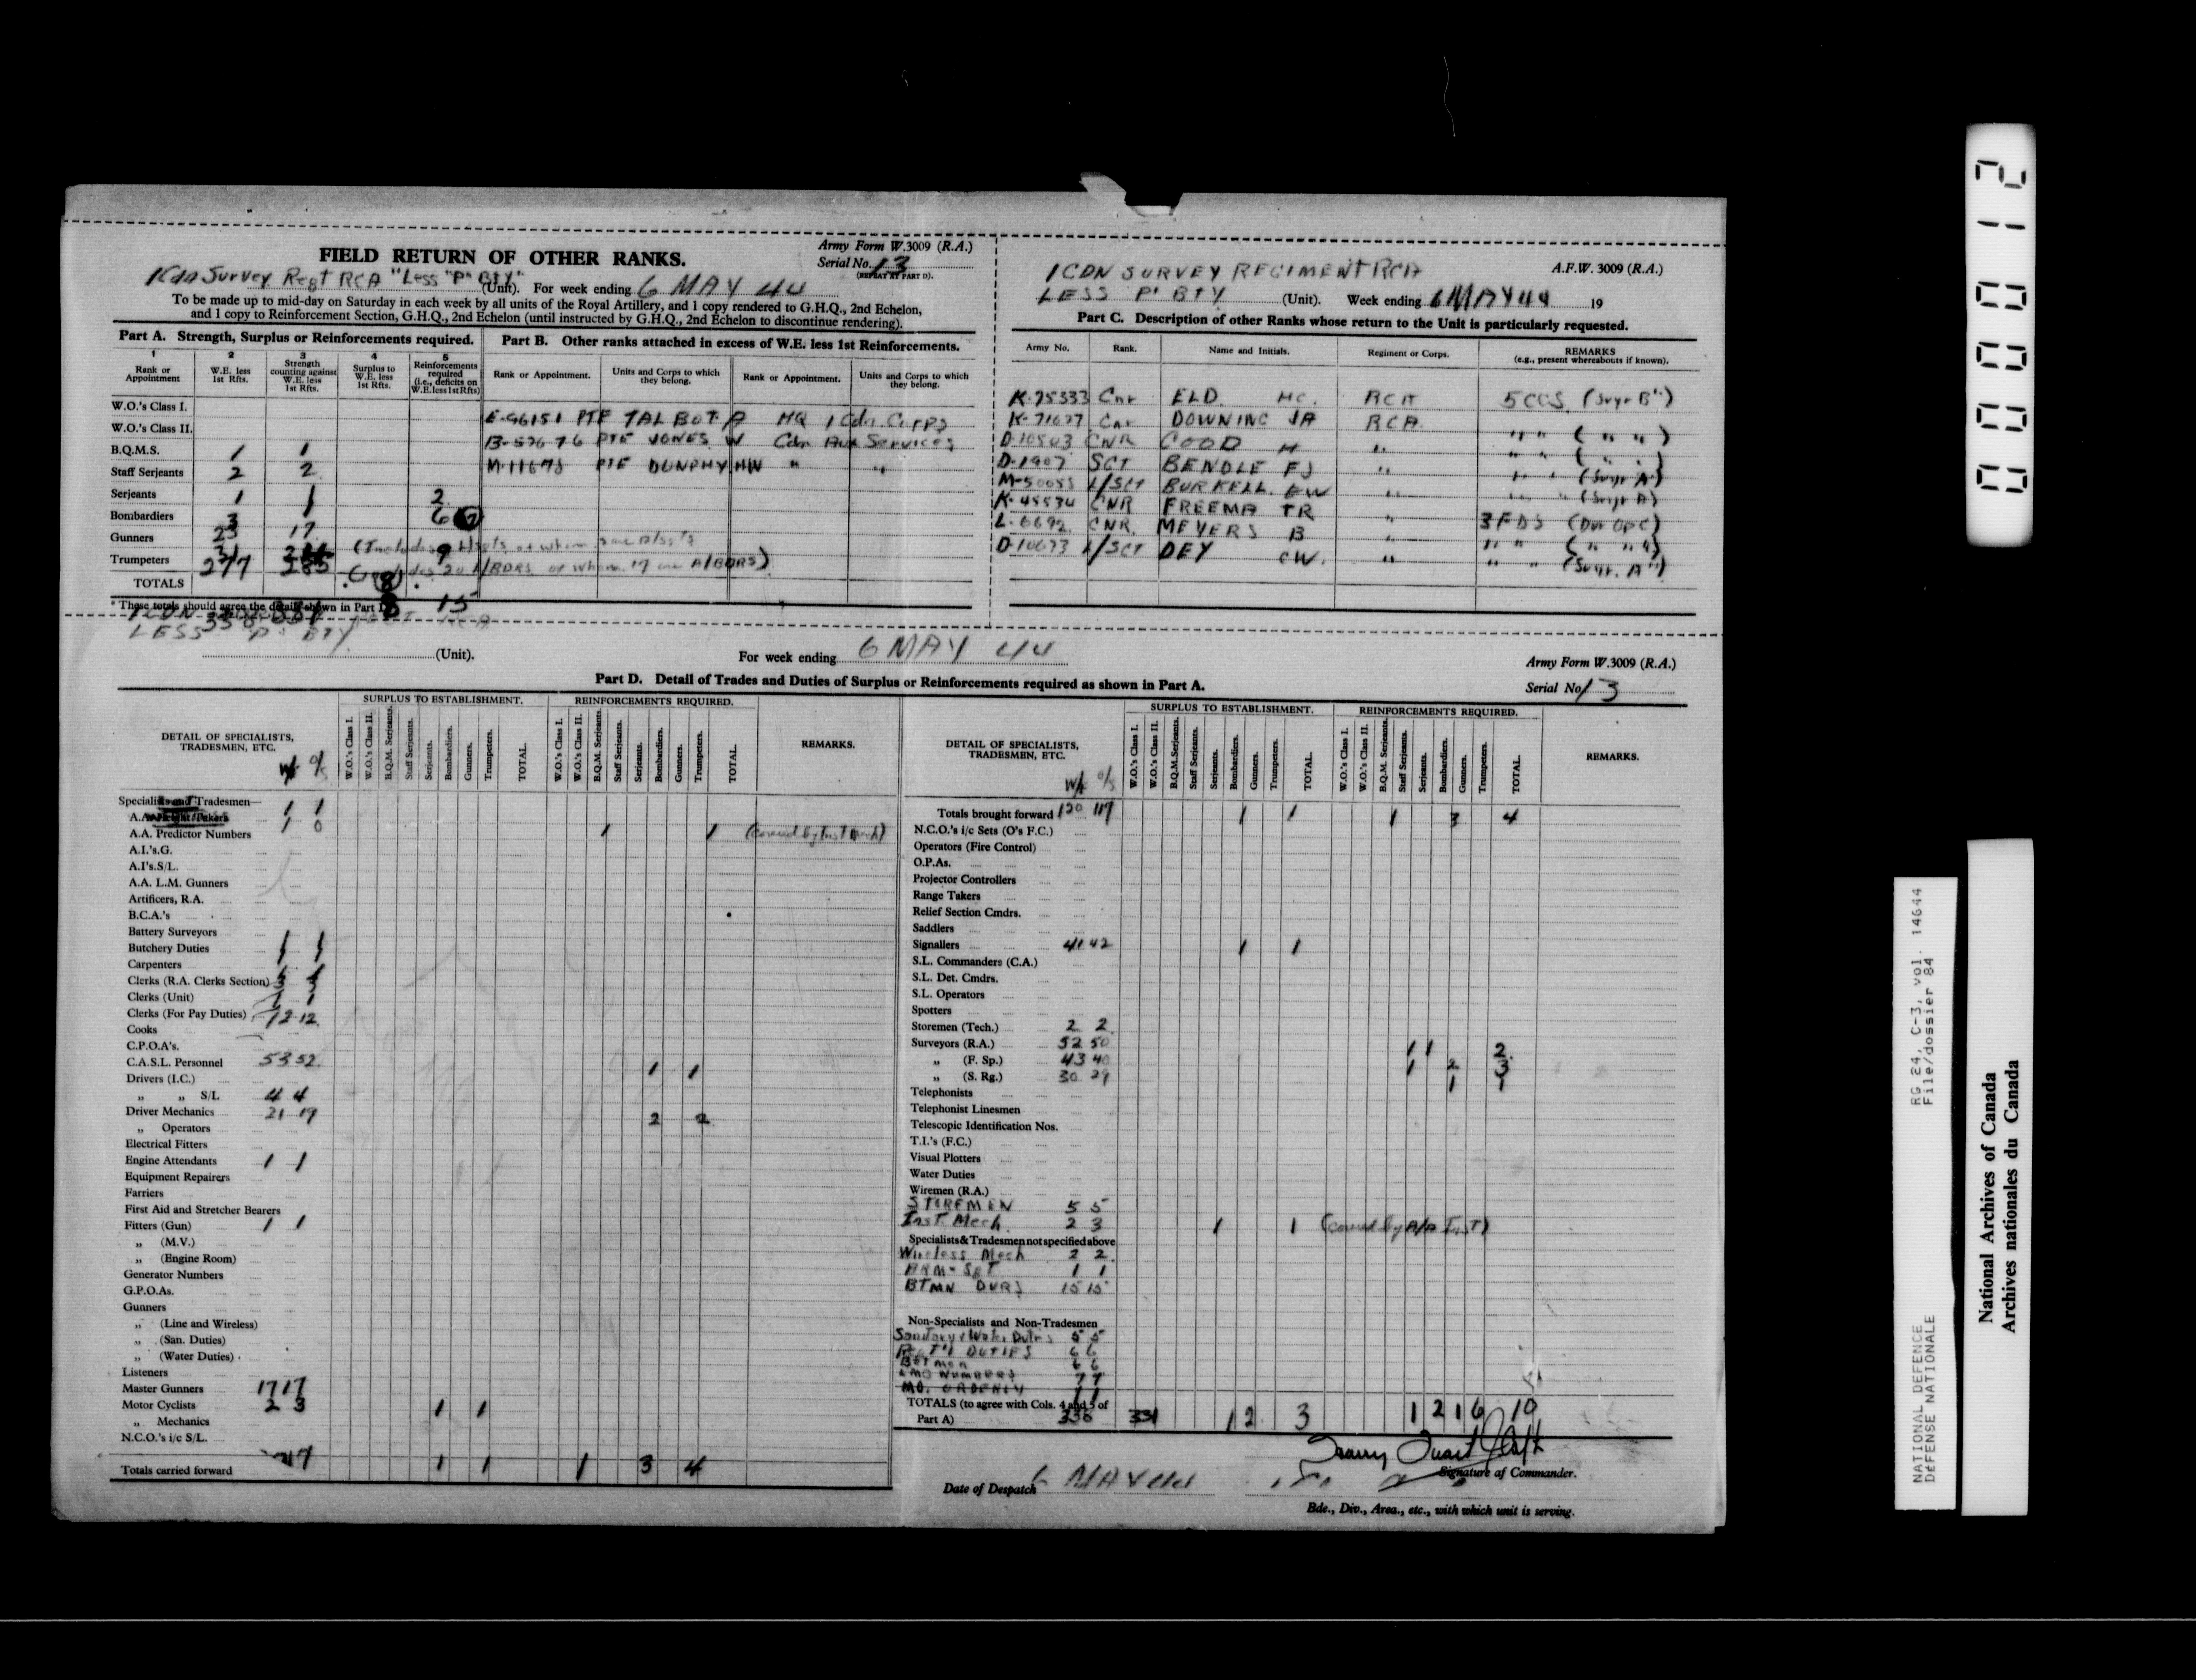 FIELD RETURN OF OTHER RANKS.
Army Form W.3009 (R.A.)
Serial No. 13
(REPEAT AT PART D).
1 Cdn Survey Regt RCA "Less "P" BTY" (Unit). For week ending 6 MAY 44
To be made up to mid-day on Saturday in each week by all units of the Royal Artillery, and 1 copy rendered to G.H.Q., 2nd Echelon,
and 1 copy to Reinforcement Section, G.H.Q., 2nd Echelon (until instructed by G.H.Q., 2nd Echelon to discontinue rendering).
Part A. Strength, Surplus or Reinforcements required.
1 Rank or Appointment
2 W.E. less 1st Rfts.
3 Strength counting against W.E. less 1st Rfts.
4 Surplus to W.E. less 1st Rfts.
5 Reinforcements required (i.e., deficits on W.E. less 1st Rfts)
W.O.'s Class I.
W.O.'s Class II.
B.Q.M.S. 1 1
Staff Serjeants 2 2
Serjeants 1 1 2
Bombardiers 3 6
Gunners 23 17
Trumpeters 31 9
277 285
TOTALS 8 15
* These totals should agree the details shown in Part D
Part B. Other ranks attached in excess of W.E. less 1st Reinforcements.
Rank or Appointment. Units and Corps to which they belong. Rank or Appointment. Units and Corps to which they belong.
E-96151 PTE TALBOT A HQ 1 Cdn Corps
B-57676 PTE JONES W Cdn Aux Services
M-11678 PTE DUNPHY HW " "
1 CDN SURVEY REGIMENT RCA
A.F.W. 3009 (R.A.)
LESS P' BTY (Unit). Week ending 6 MAY 44 19
Part C. Description of other Ranks whose return to the Unit is particularly requested.
Army No. Rank. Name and Initials. Regiment or Corps. REMARKS (e.g., present whereabouts if known).
K-75333 Gnr ELD HC. RCA 5 CCS (Svyr B")
K-71627 Gnr DOWNING JA RCA " " ( " " )
D-10503 GNR GOOD H " " " ( " " )
D-1907 SGT BENDLE FJ " " " (Svyr A")
M-50055 L/SGT BURKELL EW " " " (Svyr A)
K-45534 GNR FREEMA TR " 3 FDS (Dvr OPC)
L-6692 GNR. MEYERS B " " " ( " " ")
D-10673 L/SGT DEY CW. " " " (Svyr. A")
1 CDN
LESS P' BTY
(Unit). For week ending 6 MAY 44
Army Form W.3009 (R.A.)
Part D. Detail of Trades and Duties of Surplus or Reinforcements required as shown in Part A.
Serial No 13
DETAIL OF SPECIALISTS, TRADESMEN, ETC.
SURPLUS TO ESTABLISHMENT.
W.O.'s Class I. W.O.'s Class II. B.Q.M. Serjeants. Staff Serjeants. Serjeants. Bombardiers. Gunners. Trumpeters. TOTAL.
REINFORCEMENTS REQUIRED.
W.O.'s Class I. W.O.'s Class II. B.Q.M. Serjeants. Staff Serjeants. Serjeants. Bombardiers. Gunners. Trumpeters. TOTAL.
REMARKS.
Specialists and Tradesmen— 1 1
A.A. Height Takers 1 0
A.A. Predictor Numbers 1 1 (covered by Inst Mech)
A.I.'s.G.
A.I's.S/L.
A.A. L.M. Gunners
Artificers, R.A.
B.C.A.'s
Battery Surveyors
Butchery Duties 1 1
Carpenters 1 1
Clerks (R.A. Clerks Section)
Clerks (Unit)
Clerks (For Pay Duties) 12 12
Cooks
C.P.O.A's.
C.A.S.L. Personnel 53 52
Drivers (I.C.) 1 1
" " S/L 4 4
Driver Mechanics 21 19
" Operators 2 2
Electrical Fitters
Engine Attendants 1 1
Equipment Repairers
Farriers
First Aid and Stretcher Bearers
Fitters (Gun) 1 1
" (M.V.)
" (Engine Room)
Generator Numbers
G.P.O.As.
Gunners
" (Line and Wireless)
" (San. Duties)
" (Water Duties)
Listeners
Master Gunners 17 17
Motor Cyclists 2 3 1 1
" Mechanics
N.C.O.'s i/c S/L.
Totals carried forward 1 1 1 3 4
DETAIL OF SPECIALISTS, TRADESMEN, ETC.
SURPLUS TO ESTABLISHMENT.
W.O.'s Class I. W.O.'s Class II. B.Q.M.Serjeants. Staff Serjeants. Serjeants. Bombardiers. Gunners. Trumpeters. TOTAL.
REINFORCEMENTS REQUIRED.
W.O.'s Class I. W.O.'s Class II. B.Q.M. Serjeants. Staff Serjeants. Serjeants. Bombardiers. Gunners. Trumpeters. TOTAL.
REMARKS.
Totals brought forward 120 117 1 1 1 3 4
N.C.O.'s i/c Sets (O's F.C.)
Operators (Fire Control)
O.P.As.
Projector Controllers
Range Takers
Relief Section Cmdrs.
Saddlers
Signallers 41 42 1 1
S.L. Commanders (C.A.)
S.L. Det. Cmdrs.
S.L. Operators
Spotters
Storemen (Tech.) 2 2
Surveyors (R.A.) 52 50 1 1 2
" (F. Sp.) 43 40 1 2 3
" (S. Rg.) 30 29 1 1
Telephonists
Telephonist Linesmen
Telescopic Identification Nos.
T.I.'s (F.C.)
Visual Plotters
Water Duties
Wiremen (R.A.)
STOREMEN 5 5
Inst Mech. 2 3 1 1 (covered by A/A Inst)
Specialists & Tradesmen not specified above
Wireless Mech 2 2
ARM-SGT 1 1
BTMN DVRS 15 15
Non-Specialists and Non-Tradesmen
Sanitary & Water Duties 5 5
REGT'L DUTIES 6 6
Batmen 6 6
LMG NUMBERS 7 7
MO. ORDERLY 1 1
TOTALS (to agree with Cols. 4 and 5 of Part A) 338 331 1 2 3 1 2 1 6 10
Signature of Commander.
Date of Despatch 6 MAY 44
Bde., Div., Area., etc., with which unit is serving.
000012
RG 24, C-3, vol. 14644
File/dossier 84
NATIONAL DEFENCE
DÉFENSE NATIONALE
National Archives of Canada
Archives nationales du Canada